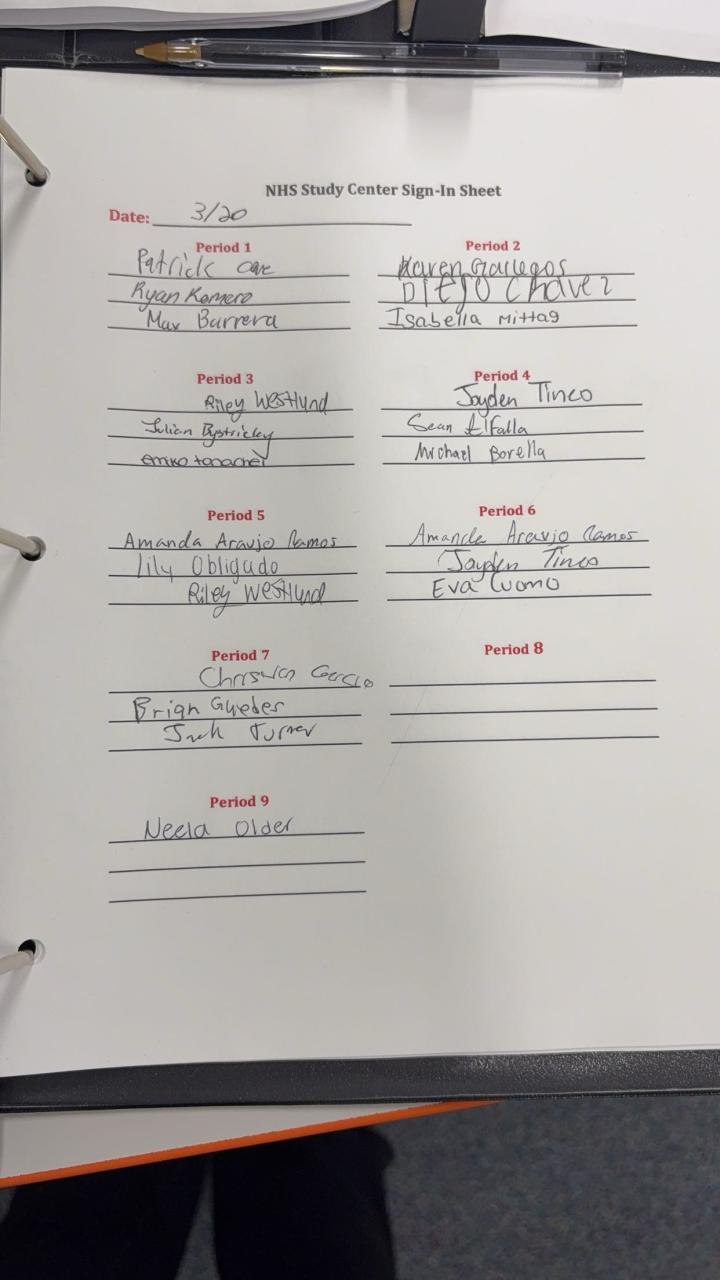 NHS Study Center Sign-In Sheet
Date: 3/20
Period 1
Patrick
Ryan Romero
Max Barrera
Period 2
Karen Gallegos
Diego Chavez
Isabella Mittag
Period 3
Riley Westlund
Julian Bystricky
Period 4
Jayden Tineo
Sean Elfalla
Michael Borella
Period 5
Amanda Araujo Ramos
Lily Obligado
Riley Westlund
Period 6
Amanda Araujo Ramos
Jayden Tineo
Eva Cuomo
Period 7
Garcia
Brian Guebes
Jack Turner
Period 8
Period 9
Neela Older